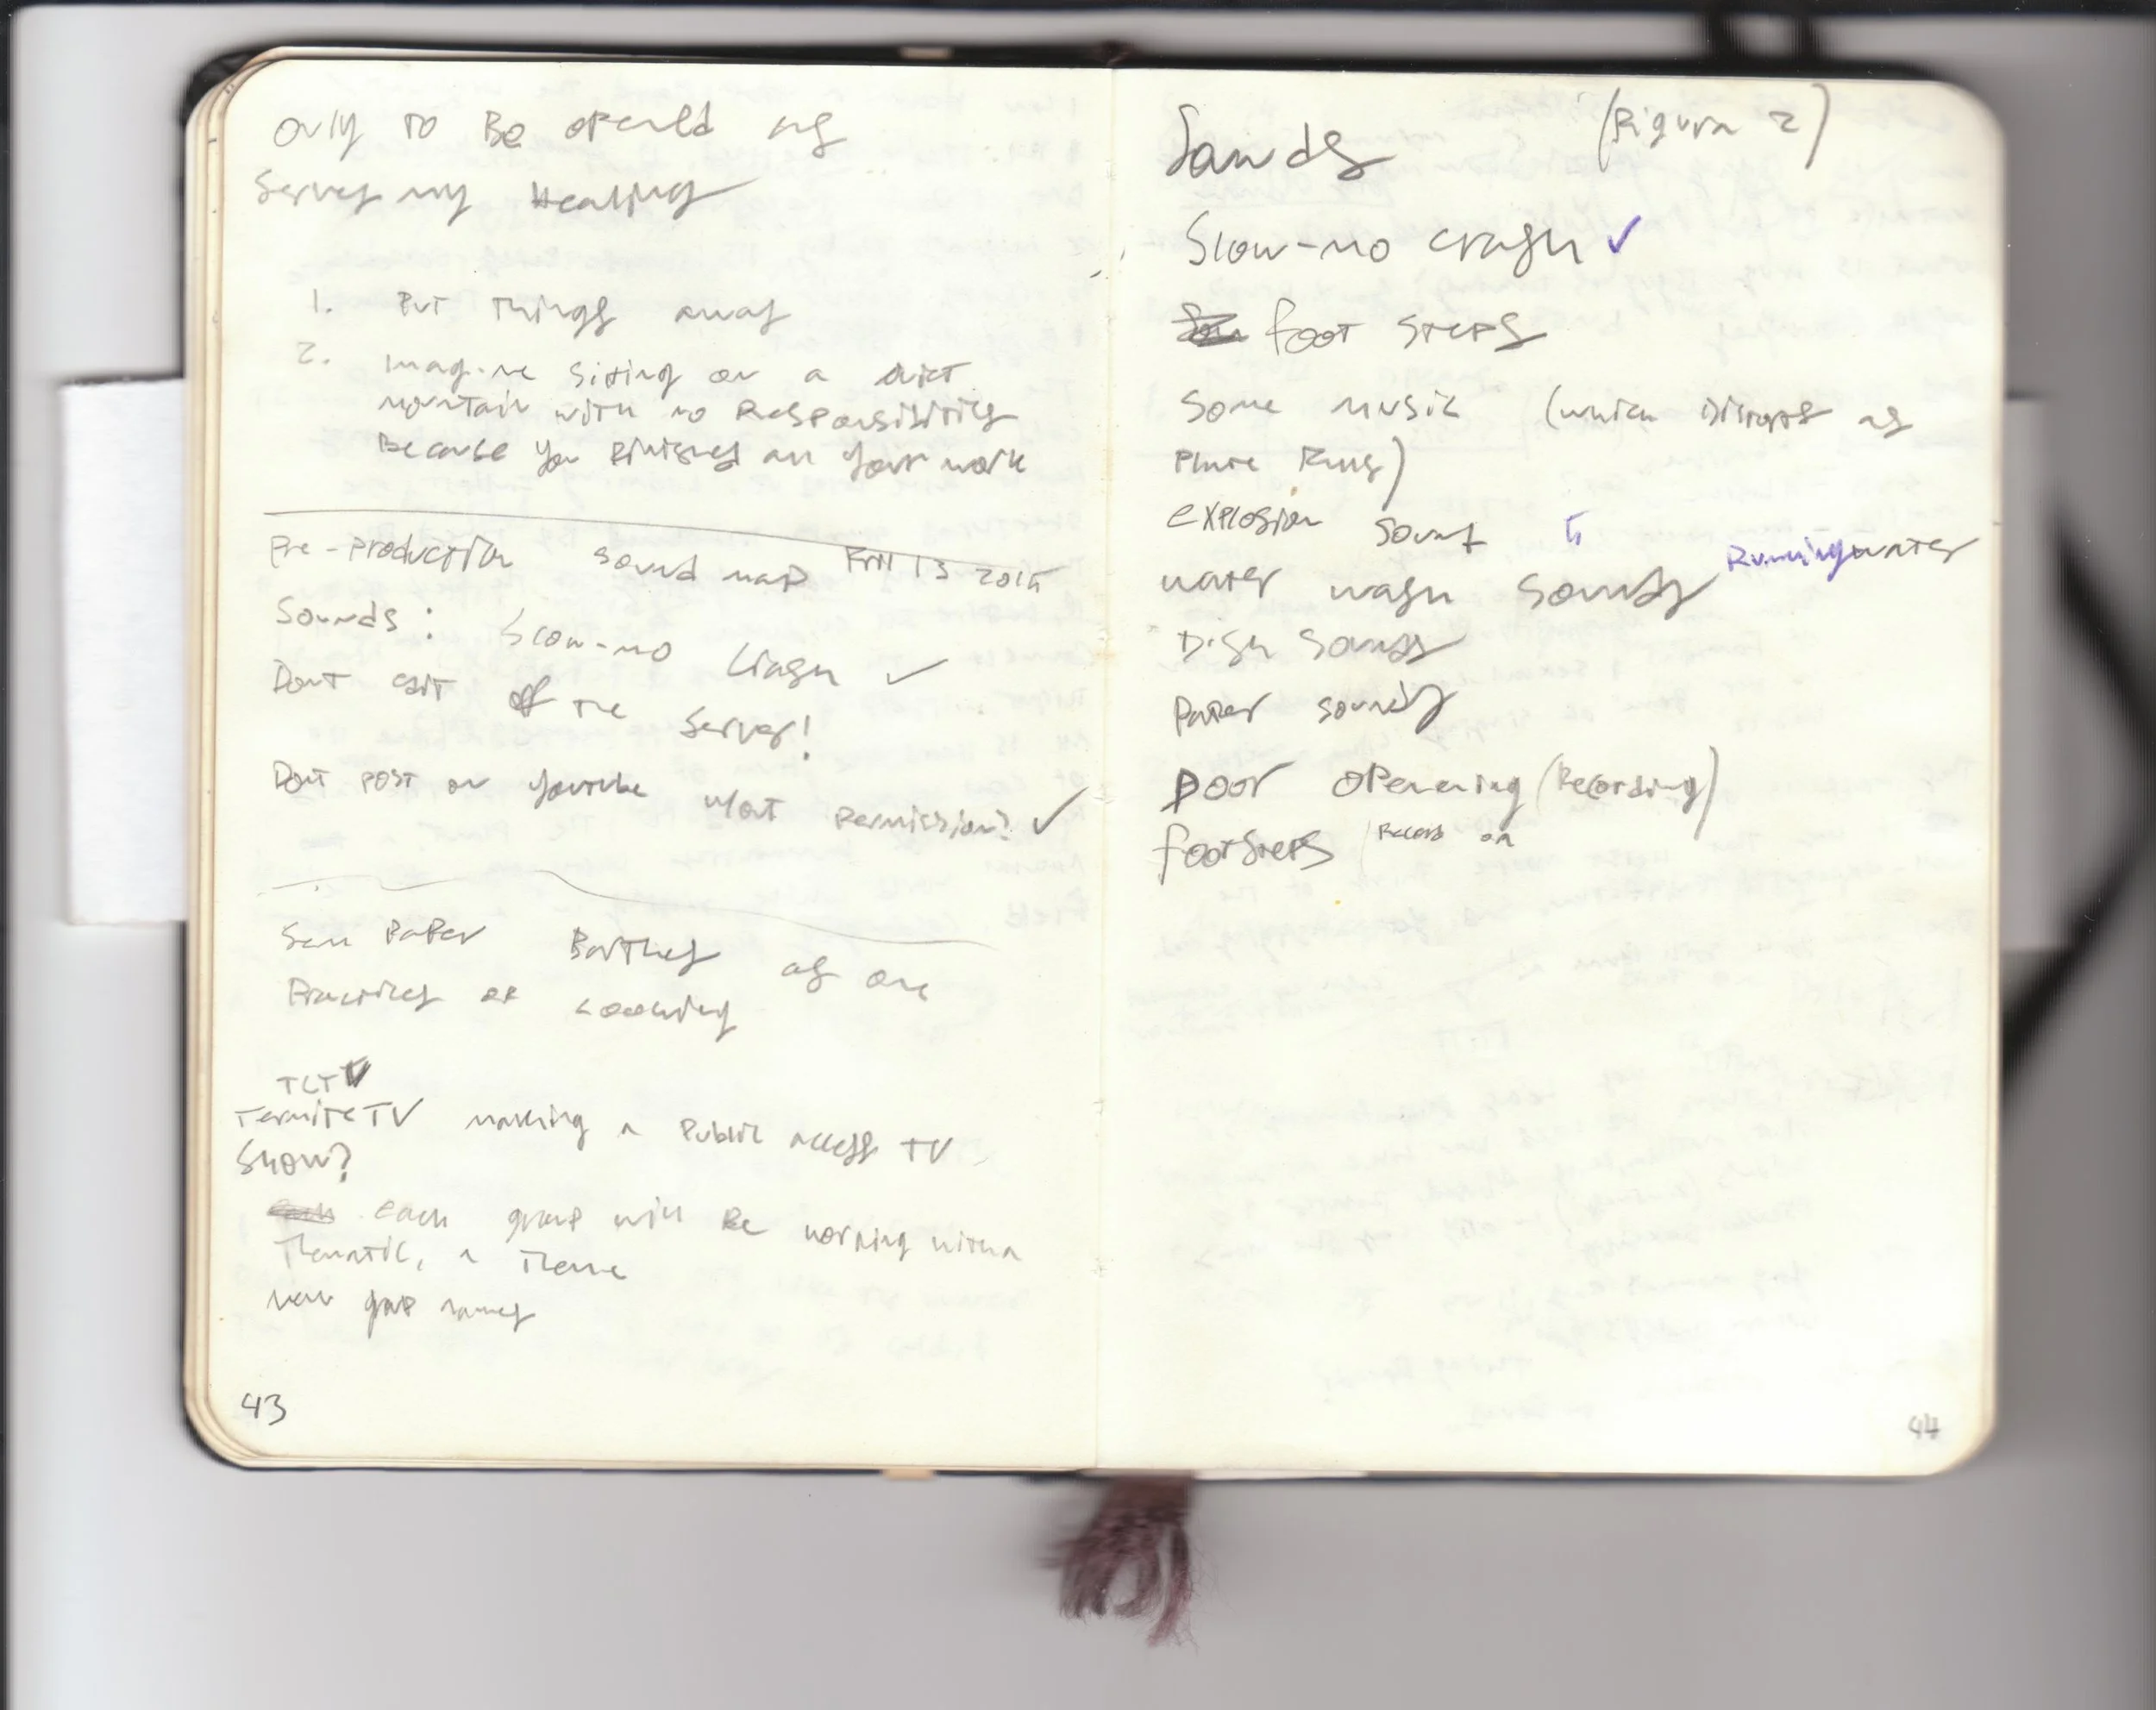 only to Be opened as
serves my Healing
1. Put things away
2. Imagine siting on a quiet
mountain with no Responsibilities
Because you finished all your work
Pre-production sound map 13 2015
Sounds: Slow-mo Crash ✓
Dont edit off the server!
Dont post on youtube w/out permission? ✓
Paper Barthes as one
Practices of Looking
TCTV
TermiteTV making a public access TV
Show?
each group will Be working with a
Thematic, a Theme
new group names
43
Sounds (Figura 2)
Slow-mo crash ✓
foot steps
Some music (which Disrupts as
Phone Rings)
explosion sound
water wash sounds Running water
Dish sounds
Paper sounds
Door opening (Recording)
footsteps / Record on
44